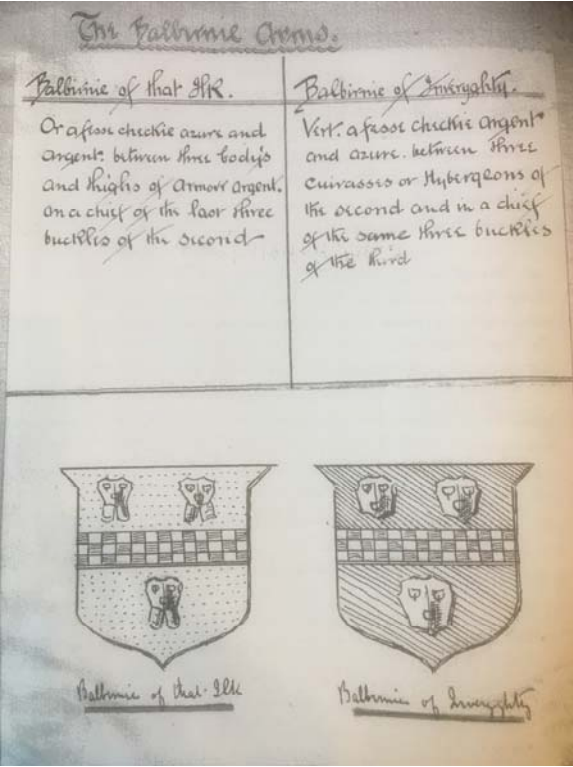 The Balbirnie Arms.
Balbirnie of that Ilk.
Or a fesse checkie azure and
argent. between three body's
and thighs of armour argent.
on a chief of the last three
buckles of the second
Balbirnie of Inveryghty.
Vert. a fesse checkie argent
and azure. between three
cuirasses or Hybergeons of
the second and in a chief
of the same three buckles
of the third
Balbirnie of that Ilk
Balbirnie of Inveryghty